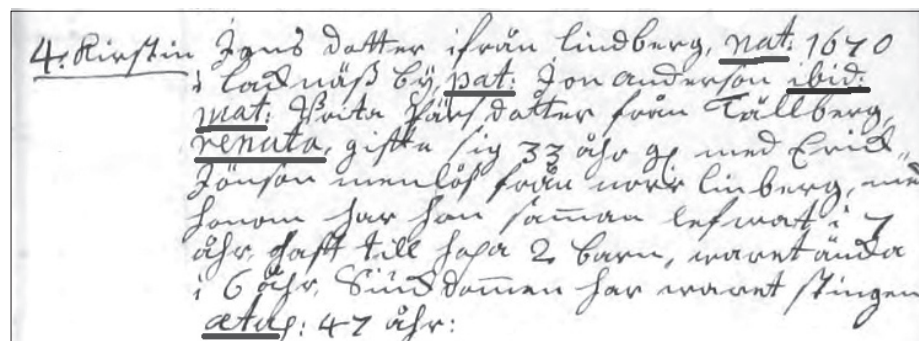 4. Kirstin Jons dotter ifrån lindberg, nat: 1670
i Lacknäß by, pat: Jon anderson ibid:
mat: Brita Pärs dotter från Tällberg,
renata, giffte sig 33 åhr gl med Erick
Jönson menlös från norr linberg, med
honom har hon samman lefwat i 7
åhr, hafft till hopa 2 barn, waret änckia
i 6 åhr. Siuckdommen har waret stingen
ætas: 47 åhr: